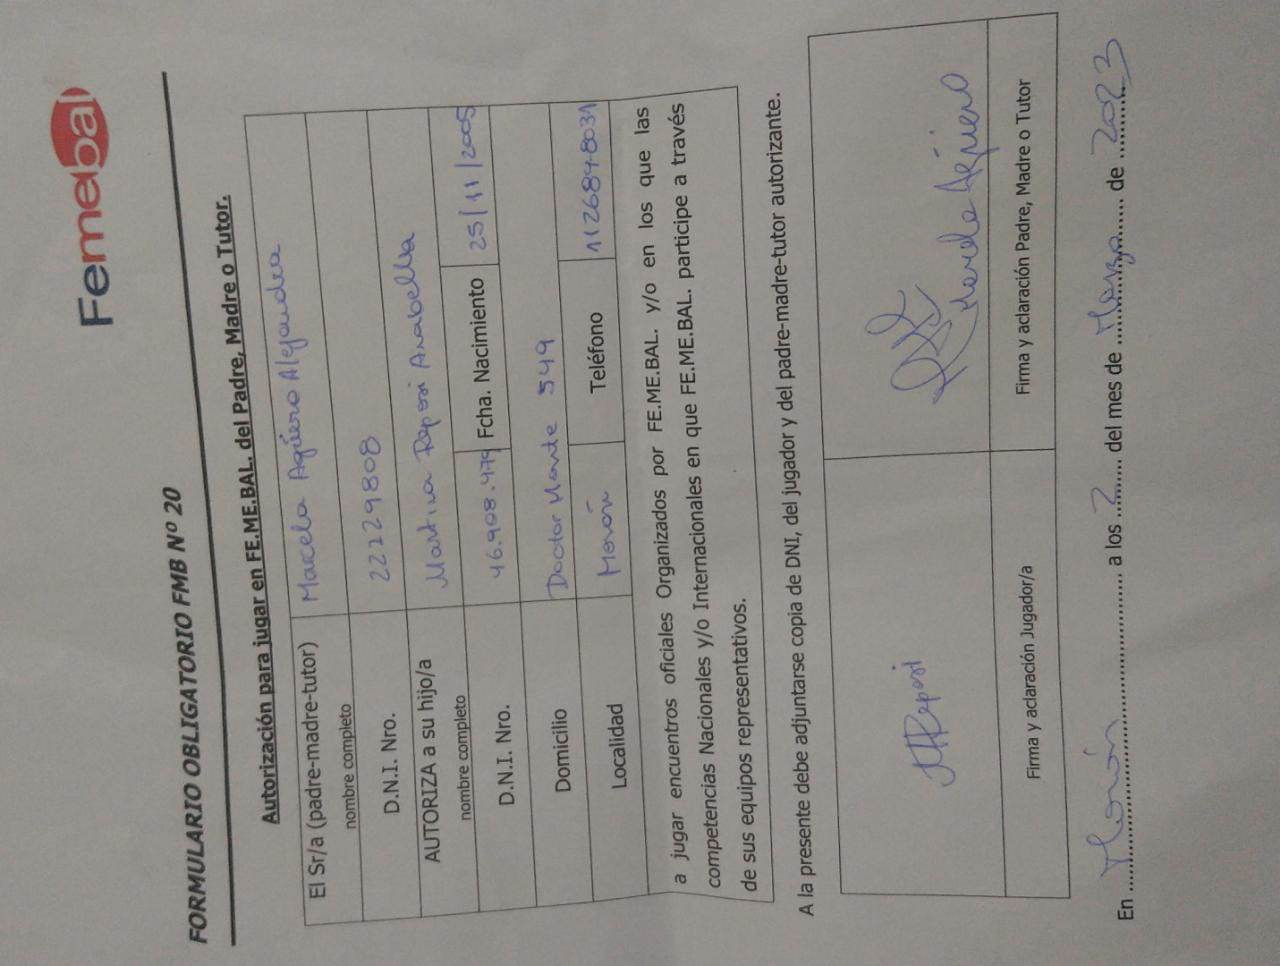 Femebal
FORMULARIO OBLIGATORIO FMB Nº 20
Autorización para jugar en FE.ME.BAL. del Padre, Madre o Tutor.
El Sr/a (padre-madre-tutor) Marcela Agüero Alejandra
nombre completo
D.N.I. Nro. 22229808
AUTORIZA a su hijo/a Martina Raposi Anabella
nombre completo
D.N.I. Nro. 46.908.479 Fcha. Nacimiento 25/11/2005
Domicilio Doctor 549
Localidad Morón Teléfono 1126848031
a jugar encuentros oficiales Organizados por FE.ME.BAL. y/o en los que las
competencias Nacionales y/o Internacionales en que FE.ME.BAL. participe a través
de sus equipos representativos.
A la presente debe adjuntarse copia de DNI, del jugador y del padre-madre-tutor autorizante.
Raposi Marcela Agüero
Firma y aclaración Jugador/a Firma y aclaración Padre, Madre o Tutor
En Morón a los 2 del mes de Marzo de 2023